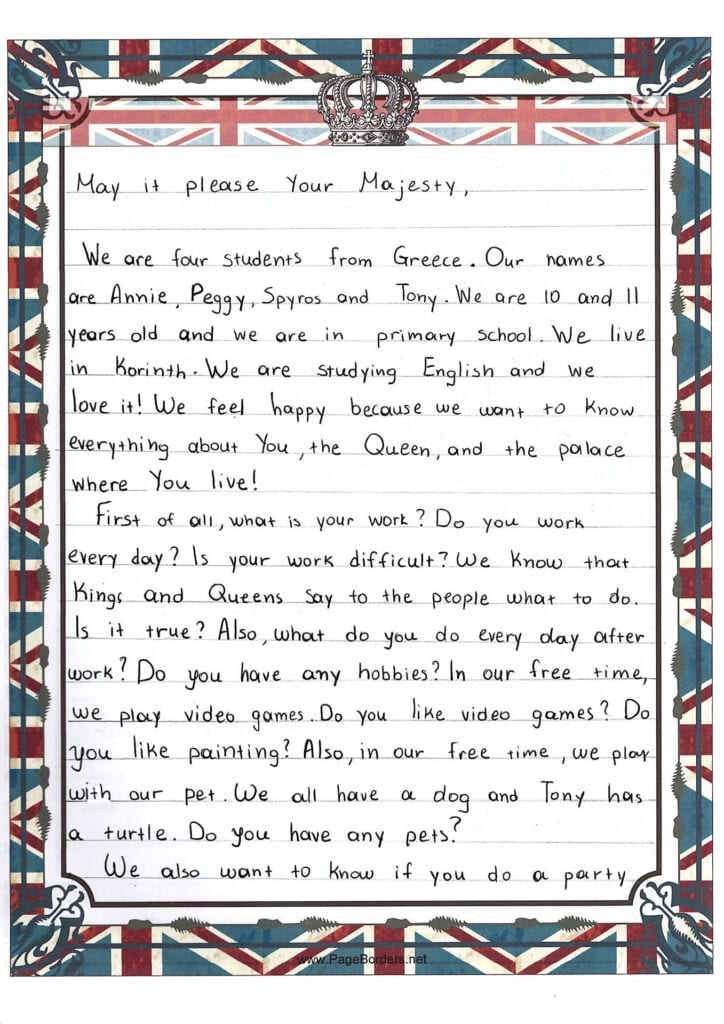 May it please Your Majesty,
We are four students from Greece. Our names
are Annie, Peggy, Spyros and Tony. We are 10 and 11
years old and we are in primary school. We live
in Korinth. We are studying English and we
love it! We feel happy because we want to know
everything about You, the Queen, and the palace
where You live!
First of all, what is your work? Do you work
every day? Is your work difficult? We know that
Kings and Queens say to the people what to do.
Is it true? Also, what do you do every day after
work? Do you have any hobbies? In our free time,
we play video games. Do you like video games? Do
you like painting? Also, in our free time, we play
with our pet. We all have a dog and Tony has
a turtle. Do you have any pets?
We also want to know if you do a party
www.PageBorders.net